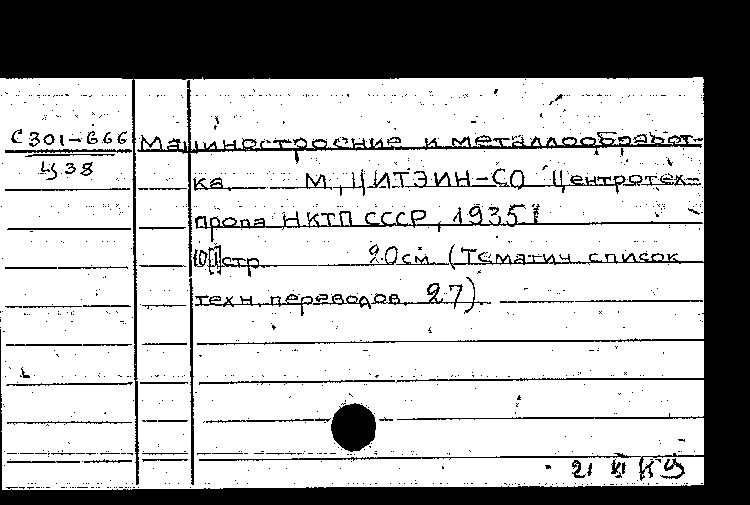 С301-666 Машиностроение и металлообработ-
Ц38
ка. М, ЦИТЭИН-СО Центротех-
пропа НКТП СССР, 1935.
стр. 20см. (Тематич. список
техн. переводов. 27).
21 VI